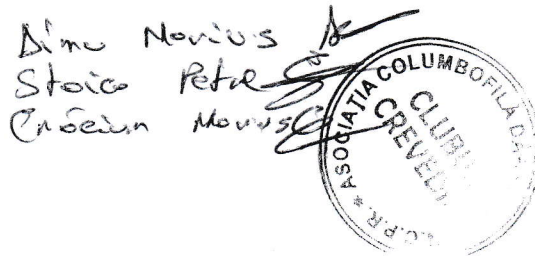 Dinu Marius
Stoica Petre
Crăciun Marius
ASOCIAȚIA COLUMBOFILĂ
CLUBUL
CREVEDI